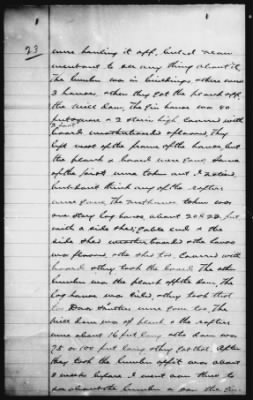 23
were hauling it off, but I never
went out to see any thing about it,
The lumber was in buildings there were
3 houses, where they got the plank off
the mill Dam, The Gin house was 40
feet square & 2 stairs high covered with
board weatherboarded & floored, They
left most of the frame of the house, but
the plank & board were gone, Some
of the joist were taken out I noticed
but dont think any of the rafters
were gone, The next house taken was
one story log house about 20 x 22 feet
with a side shed, gable ends & the
side shed weather boarded & the house
was floored & the shed too, Covered with
board & they took the board. The other
lumber was the plank off the dam, The
log house was tiled, they took that
too, Door shutters were gone too, The
mill Dam was of plank & the rafters
were about 16 feet long & the dam was
75 or 100 feet long & they got that. After
they took the lumber off it was about
2 weeks before I went over there to
see about the lumber &